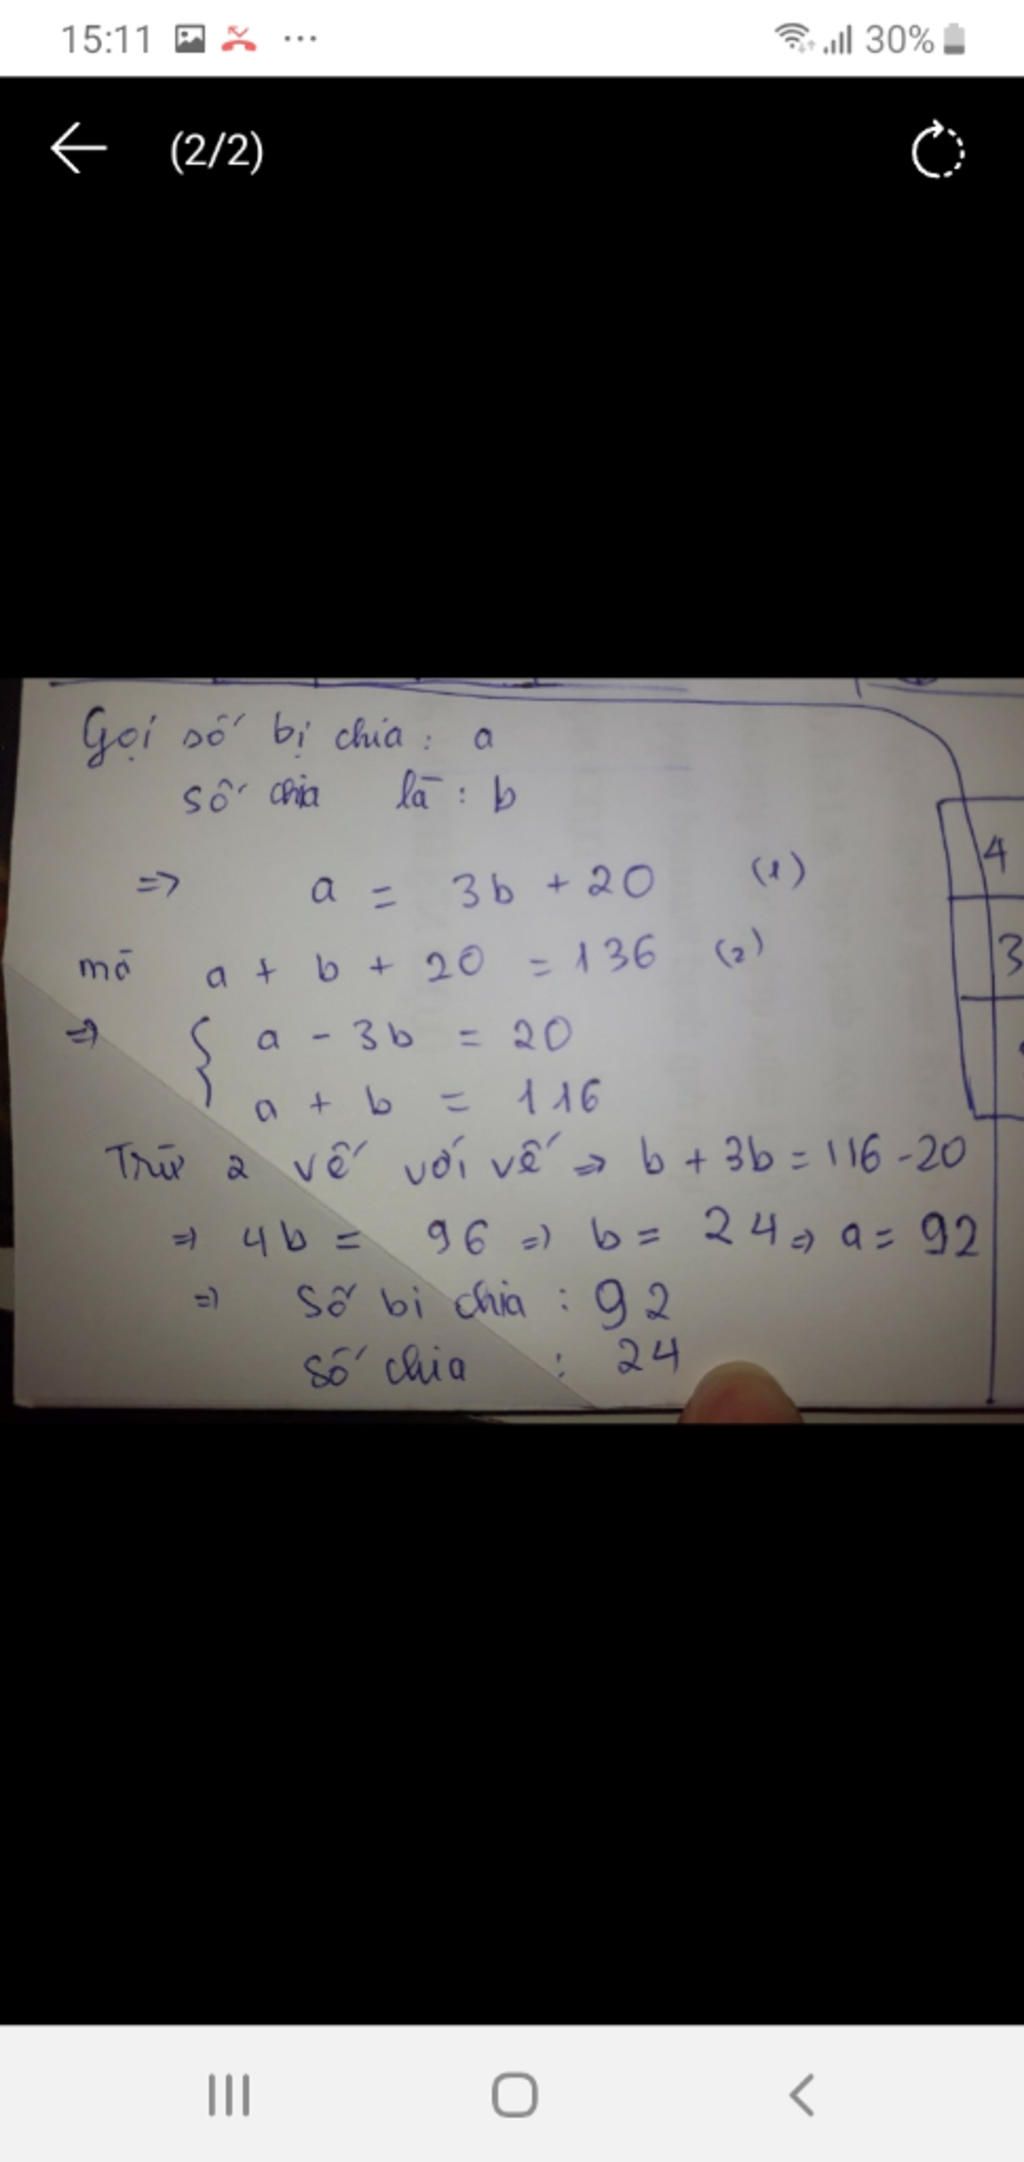 15:11 ... 30%
(2/2)
Gọi số bị chia : a
số chia là : b
=> a = 3b + 20 (1)
mà a + b + 20 = 136 (2)
=> { a - 3b = 20
a + b = 116
Trừ 2 vế với vế => b + 3b = 116 - 20
=> 4b = 96 => b = 24 => a = 92
=> Số bị chia : 92
Số chia : 24
4
3